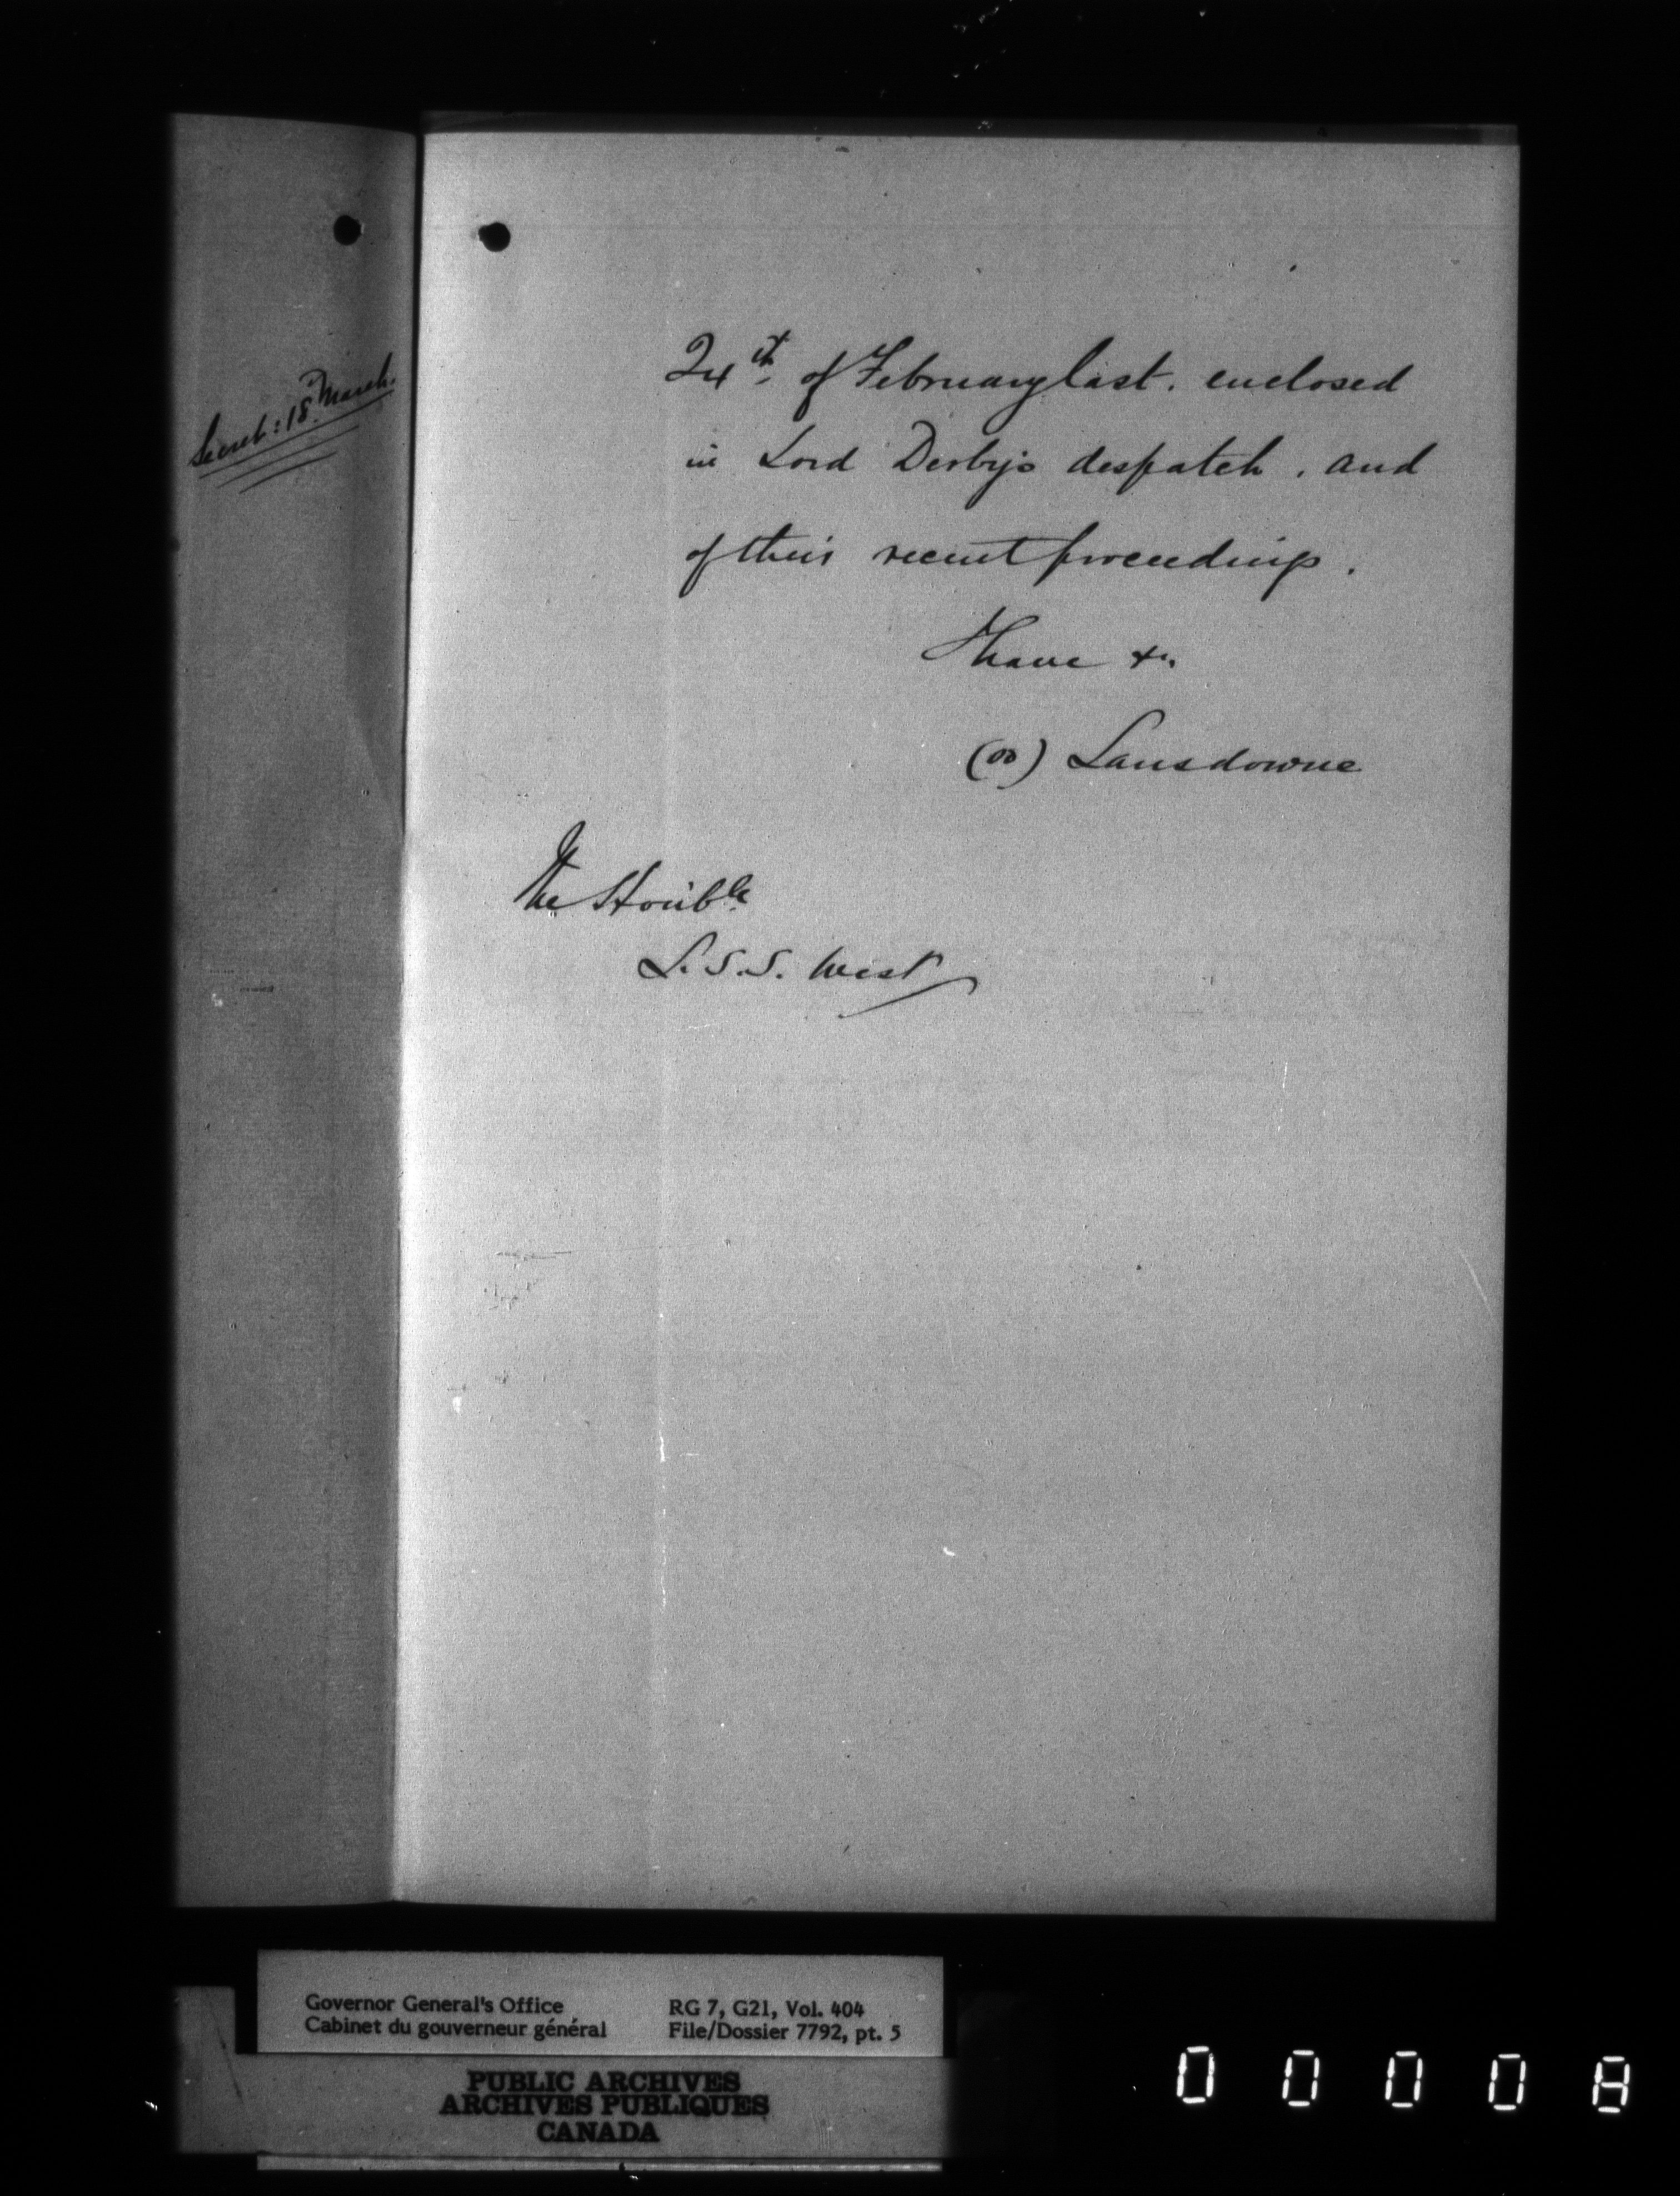 Secret: 18 March.
24th. of February last. enclosed
in Lord Derby's despatch, and
of their recent proceedings.
I have &c.
(sd) Lansdowne
The Honble
L. S. S. West
Governor General's Office
Cabinet du gouverneur général
RG 7, G21, Vol. 404
File/Dossier 7792, pt. 5
PUBLIC ARCHIVES
ARCHIVES PUBLIQUES
CANADA
0 0 0 0 8